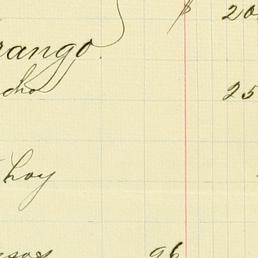 $ 20
rango.
cho 25
hoy
esos 96